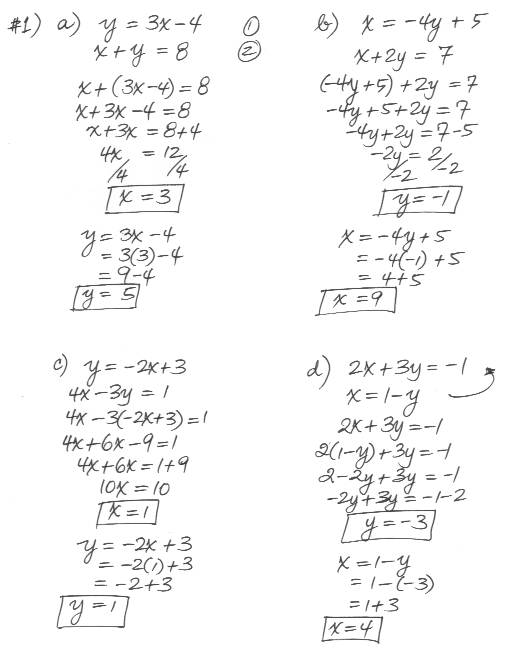 #1) a) y = 3x-4 ①
x+y = 8 ②
x+(3x-4) = 8
x+3x-4 = 8
x+3x = 8+4
4x/4 = 12/4
x = 3
y = 3x-4
= 3(3)-4
= 9-4
y = 5
b) x = -4y + 5
x+2y = 7
(-4y+5) + 2y = 7
-4y+5+2y = 7
-4y+2y = 7-5
-2y/-2 = 2/-2
y = -1
x = -4y+5
= -4(-1) +5
= 4+5
x = 9
c) y = -2x+3
4x-3y = 1
4x-3(-2x+3) = 1
4x+6x-9 = 1
4x+6x = 1+9
10x = 10
x = 1
y = -2x +3
= -2(1)+3
= -2+3
y = 1
d) 2x+3y = -1
x = 1-y
2x+3y = -1
2(1-y)+3y = -1
2-2y+3y = -1
-2y+3y = -1-2
y = -3
x = 1-y
= 1-(-3)
= 1+3
x = 4